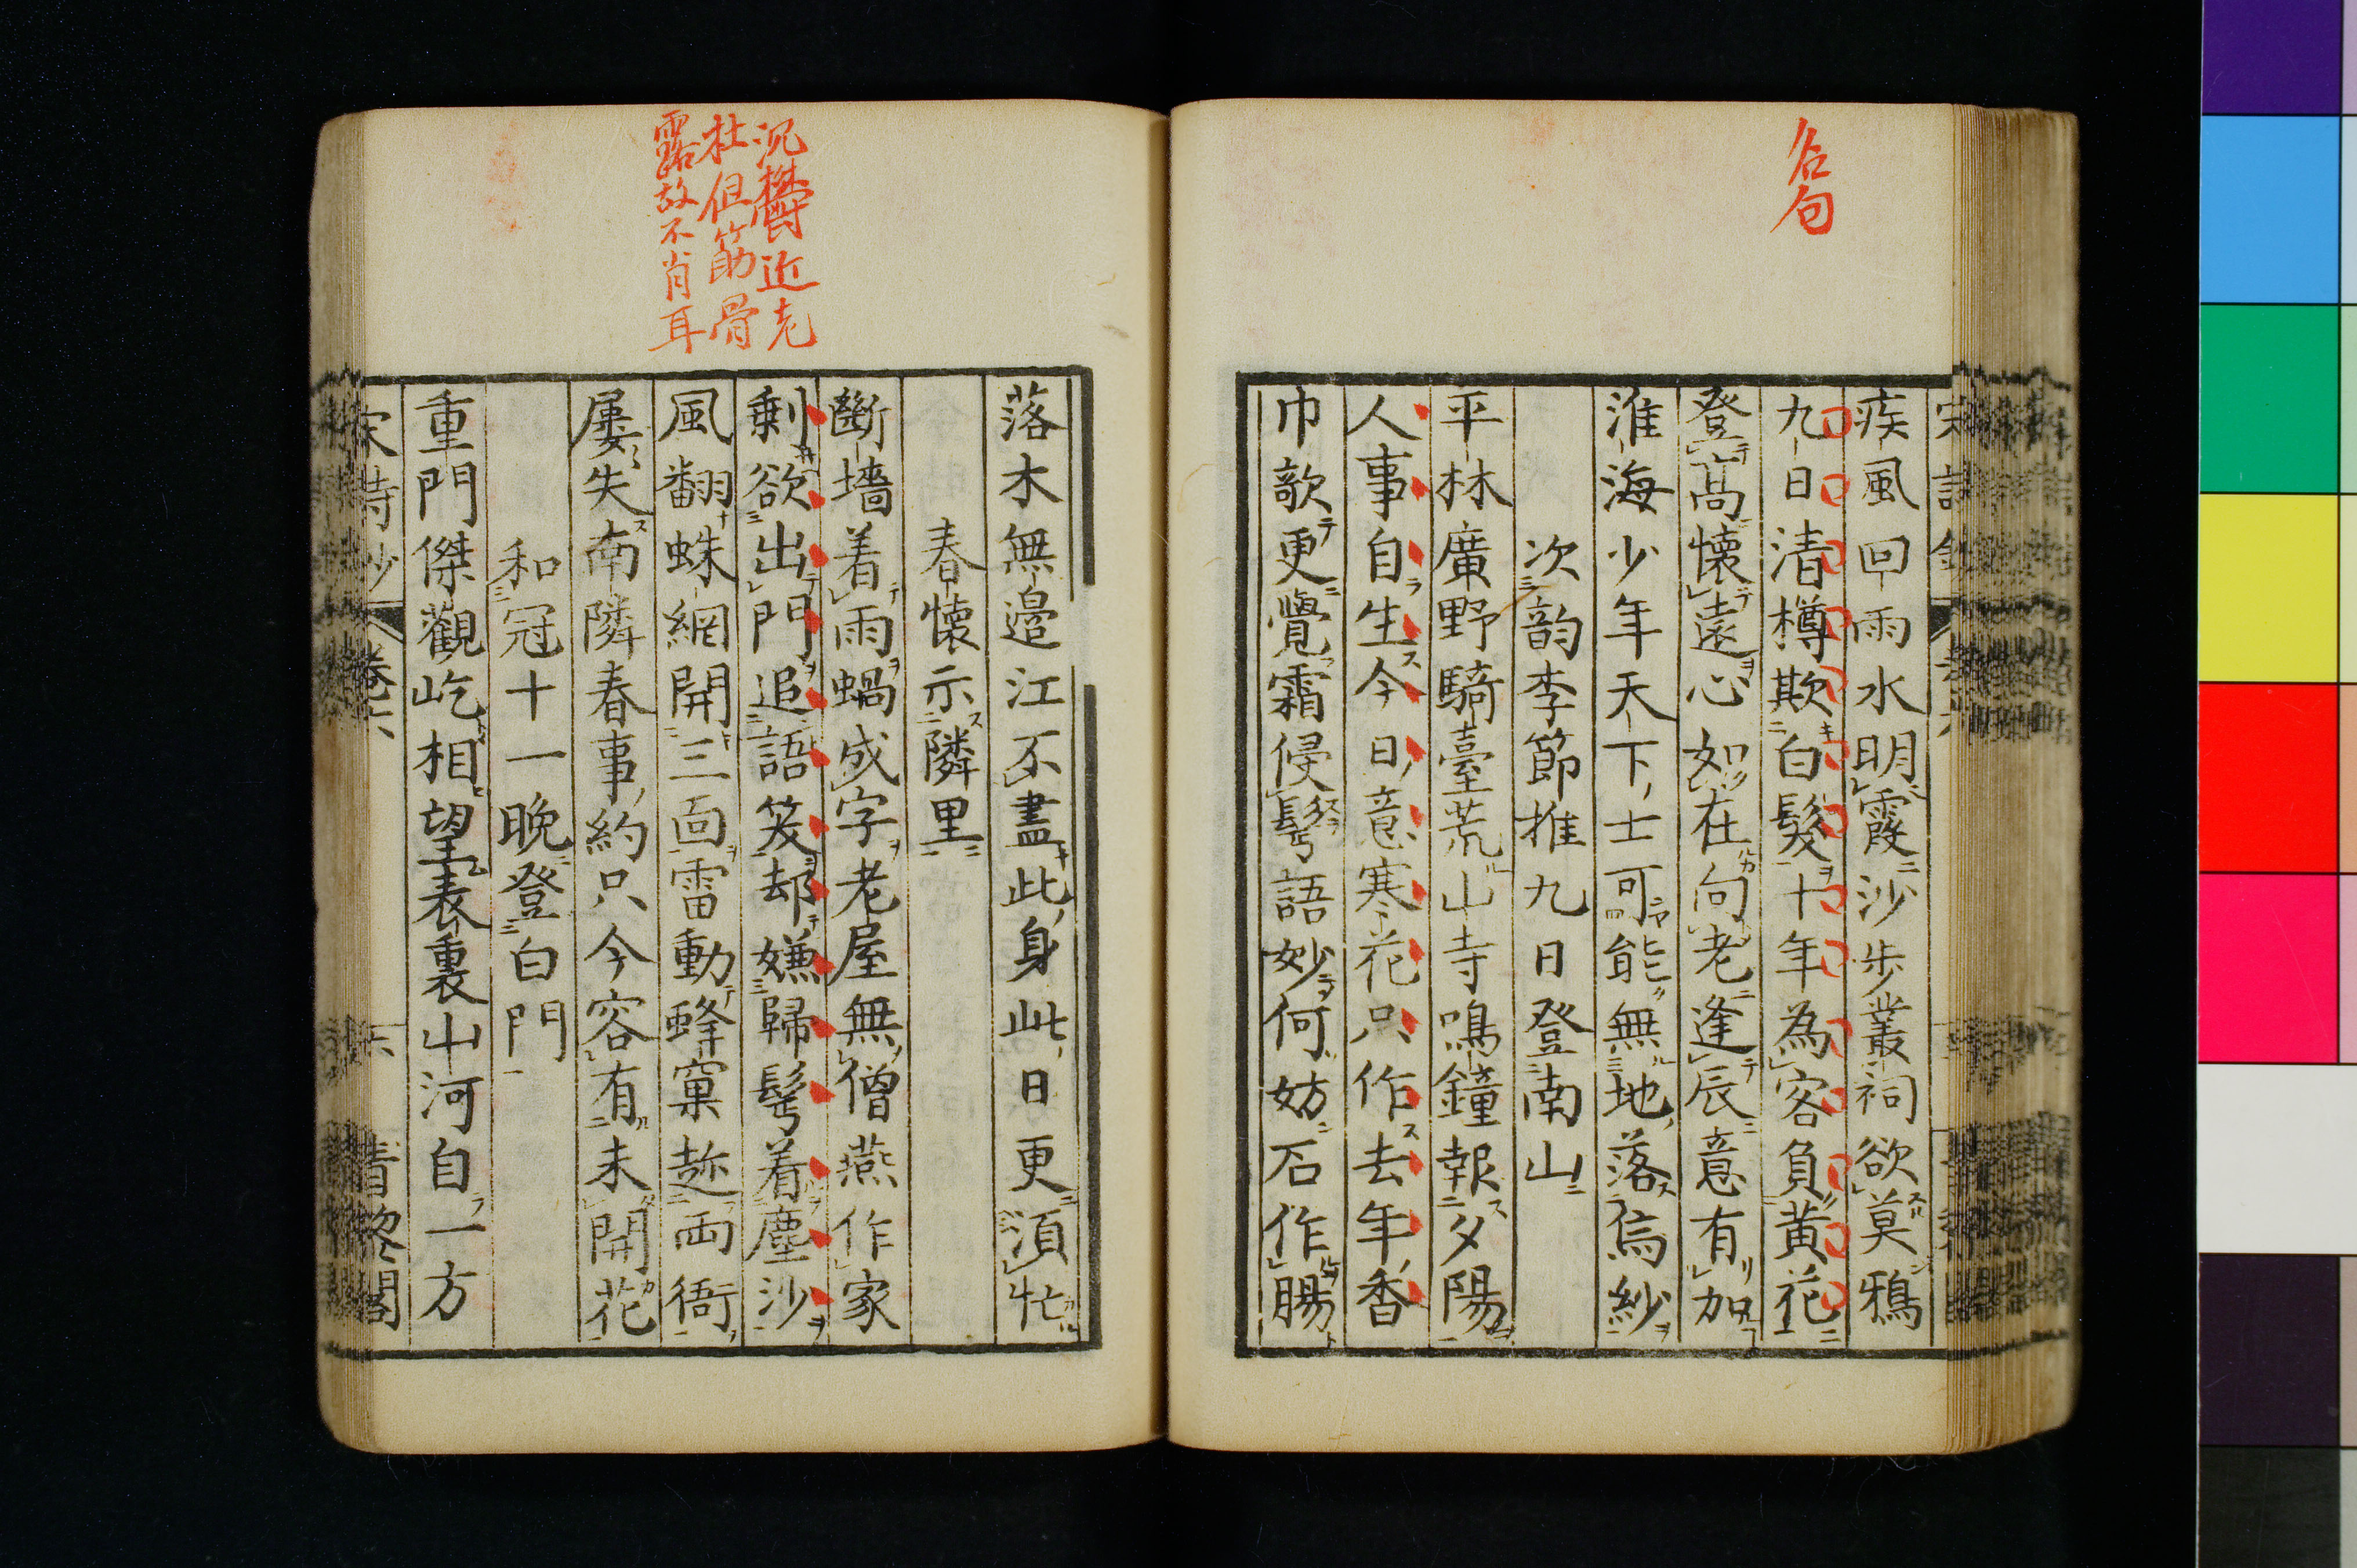 名句
宋詩鈔
疾風回雨水明霞沙步叢祠欲莫鴉
九日清樽欺白髮十年為客負黃花
登高懷遠心如在向老逢辰意有加
淮海少年天下士可能無地落烏紗
次韵李節推九日登南山
平林廣野騎臺荒山寺鳴鐘報夕陽
人事自生今日意寒花只作去年香
巾欹更覺霜侵鬢語妙何妨石作腸
沉欝近老
杜但筋骨
露故不肖耳
落木無邉江不盡此身此日更湏忙
春懷示隣里
斷墻着雨蝸成字老屋無僧燕作家
剩欲出門追語笑却嫌歸鬢着塵沙
風翻蛛網開三面雷動蜂窠趂両衙
屢失南隣春事約只今容有未開花
和冦十一晚登白門
重門傑觀屹相望表裏山河自一方
宋詩鈔 卷六 六 青黎閣